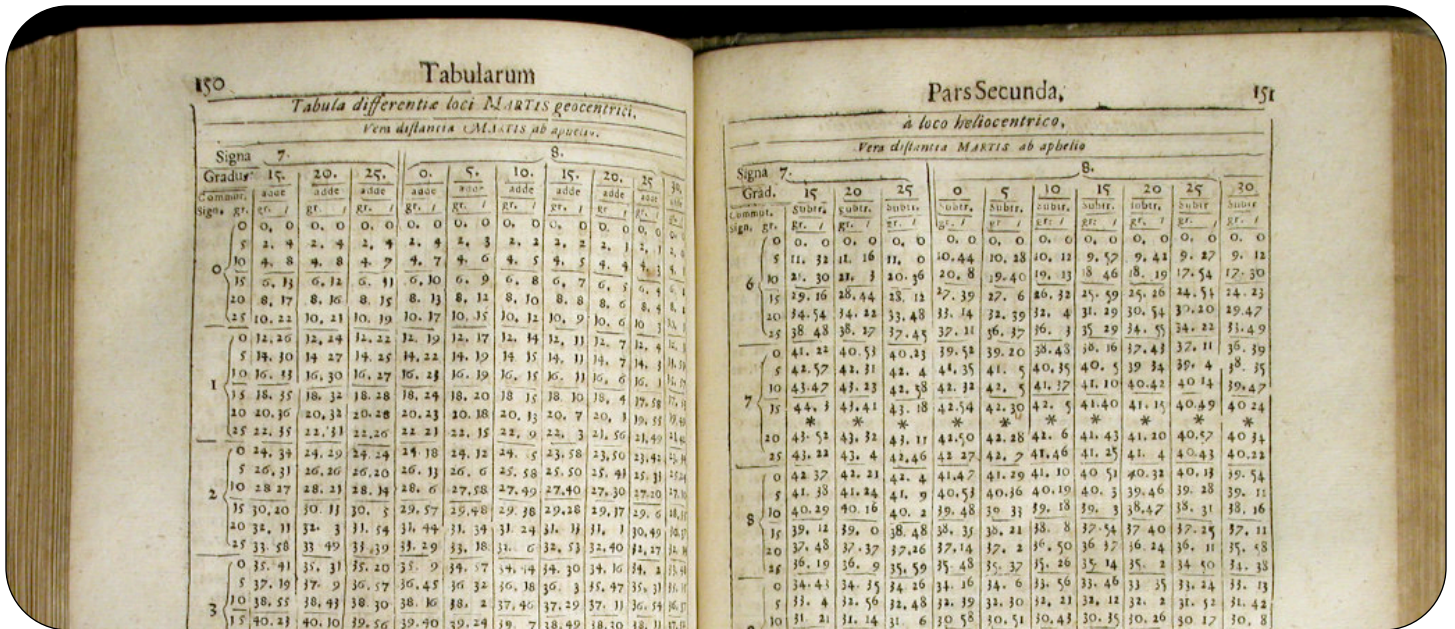 150 Tabularum
Tabula differentiæ loci MARTIS geocentrici,
Vera distantia MARTIS ab aphelio.
Signa 7. 8.
Gradus 15. 20. 25. 0. 5. 10. 15. 20. 25 30.
Commut. adde adde adde adde adde adde adde adde
Sign. gr. gr. gr. gr. gr. gr. gr. gr. gr.
0 0 0. 0 0. 0 0. 0 0. 0 0. 0 0. 0 0. 0 0. 0 0. 0
5 2. 4 2. 4 2. 4 2. 4 2. 3 2. 2 2. 2 2. 1 2. 1
10 4. 8 4. 8 4. 7 4. 7 4. 6 4. 5 4. 5 4. 4 4. 3
15 6. 13 6. 12 6. 11 6. 10 6. 9 6. 8 6. 7 6. 5 6. 4
20 8. 17 8. 16 8. 15 8. 13 8. 12 8. 10 8. 8 8. 6 8. 4
25 10. 22 10. 21 10. 19 10. 17 10. 15 10. 12 10. 9 10. 6 10 3
1 0 12. 26 12. 24 12. 22 12. 19 12. 17 12. 14 12. 11 12. 7 12. 4
5 14. 30 14 27 14. 25 14. 22 14. 19 14 15 14. 11 14. 7 14. 3
10 16. 33 16. 30 16. 27 16. 23 16. 19 16. 15 16. 11 16. 6 16. 1
15 18. 35 18. 32 18. 28 18. 24 18. 20 18 15 18. 10 18. 4 17. 58
20 20. 36 20. 32 20. 28 20. 23 20. 18 20. 13 20. 7 20. 1 19. 55
25 22. 35 22. 31 22. 26 22 21 22. 15 22. 9 22. 3 21. 56 21. 49
2 0 24. 34 24. 29 24. 24 24 18 24. 12 24. 5 23. 58 23. 50 23. 42
5 26. 31 26. 26 26. 20 26. 13 26. 6 25. 58 25. 50 25. 41 25. 33
10 28 27 28. 21 28. 14 28. 6 27. 58 27. 49 27. 40 27. 30 27. 20
15 30. 20 30. 13 30. 5 29. 57 29. 48 29. 38 29. 28 29. 17 29. 6
20 32. 11 32. 3 31. 54 31. 44 31. 34 31. 24 31. 13 31. 1 30. 49
25 33. 58 33 49 33. 39 33. 29 33. 18 32. 53 32. 40 32. 27
3 0 35. 41 35. 31 35. 20 35. 9 34. 57 34. 44 34. 30 34. 16 34. 2
5 37. 19 37. 9 36. 57 36. 45 36 32 36. 18 36. 3 35. 47 35. 31
10 38. 55 38. 43 38. 30 38. 16 38. 2 37. 46 37. 29 37. 11 36. 54
15 40. 23 40. 10 39. 56 39. 40 39. 24 39. 7 38. 49 38. 30 38. 11
Pars Secunda, 151
à loco heliocentrico,
Vera distantia MARTIS ab aphelio
Signa 7. 8.
Grad. 15 20 25 0 5 10 15 20 25 30
Commut. Subtr. Subtr. Subtr. Subtr. Subtr. Subtr. Subtr. Subtr. Subtr. Subtr.
Sign. gr. gr. gr. gr. gr. gr. gr. gr. gr. gr. gr.
6 0 0. 0 0. 0 0. 0 0. 0 0. 0 0. 0 0. 0 0. 0 0. 0 0. 0
5 11. 32 11. 16 11. 0 10. 44 10. 28 10. 12 9. 57 9. 42 9. 27 9. 12
10 21. 30 21. 3 20. 36 20. 8 19. 40 19. 13 18 46 18. 19 17. 54 17. 30
15 29. 16 28. 44 28. 12 27. 39 27. 6 26. 32 25. 59 25. 26 24. 54 24. 23
20 34. 54 34. 22 33. 48 33. 14 32. 39 32. 4 31. 29 30. 54 30. 20 29. 47
25 38. 48 38. 17 37. 45 37. 11 36. 37 36. 3 35 29 34. 55 34. 22 33. 49
7 0 41. 22 40. 53 40. 23 39. 52 39. 20 38. 48 38. 16 37. 43 37. 11 36. 39
5 42. 57 42. 31 42. 4 41. 35 41. 5 40. 35 40. 5 39 34 39. 4 38. 35
10 43. 47 43. 23 42. 58 42. 32 42. 5 41. 37 41. 10 40. 42 40 14 39. 47
15 44. 3 43. 41 43. 18 42. 54 42. 30 42. 5 41. 40 41. 15 40. 49 40 24
* * * * * * * * * *
20 43. 52 43. 32 43. 11 42. 50 42. 28 42. 6 41. 43 41. 20 40. 57 40 34
25 43. 22 43. 4 42. 46 42 27 42. 7 41. 46 41. 25 41. 4 40. 43 40. 22
8 0 42 37 42. 21 42. 4 41. 47 41. 29 41. 10 40 51 40. 32 40. 13 39. 54
5 41. 38 41. 24 41. 9 40. 53 40. 36 40. 19 40. 3 39. 46 39. 28 39. 11
10 40. 29 40. 16 40. 2 39. 48 39 33 39. 18 39. 3 38. 47 38. 31 38. 16
15 39. 12 39. 0 38. 48 38. 35 38. 21 38. 8 37. 54 37 40 37. 25 37. 11
20 37. 48 37. 37 37. 26 37. 14 37. 2 36. 50 36 37 36. 24 36. 11 35. 58
25 36. 19 36. 9 35. 59 35. 48 35. 37 35. 26 35 14 35. 2 34 50 34. 38
0 34. 43 34. 35 34 26 34. 16 34. 6 33. 56 33. 46 33 35 33. 24 33. 13
5 33. 4 32. 56 32. 48 32. 39 32. 30 32. 21 32. 12 32. 2 31. 52 31. 42
10 31. 21 31. 14 31. 6 30 58 30. 51 30. 43 30. 35 30. 26 30 17 30. 8